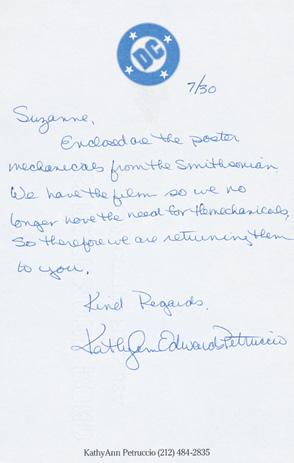 DC
7/30
Suzanne,
Enclosed are the poster
mechanicals from the Smithsonian
We have the film so we no
longer have the need for the mechanicals,
So therefore we are returning them
to you.
Kind Regards,
KathyAnn Edwards Petruccio
KathyAnn Petruccio (212) 484-2835